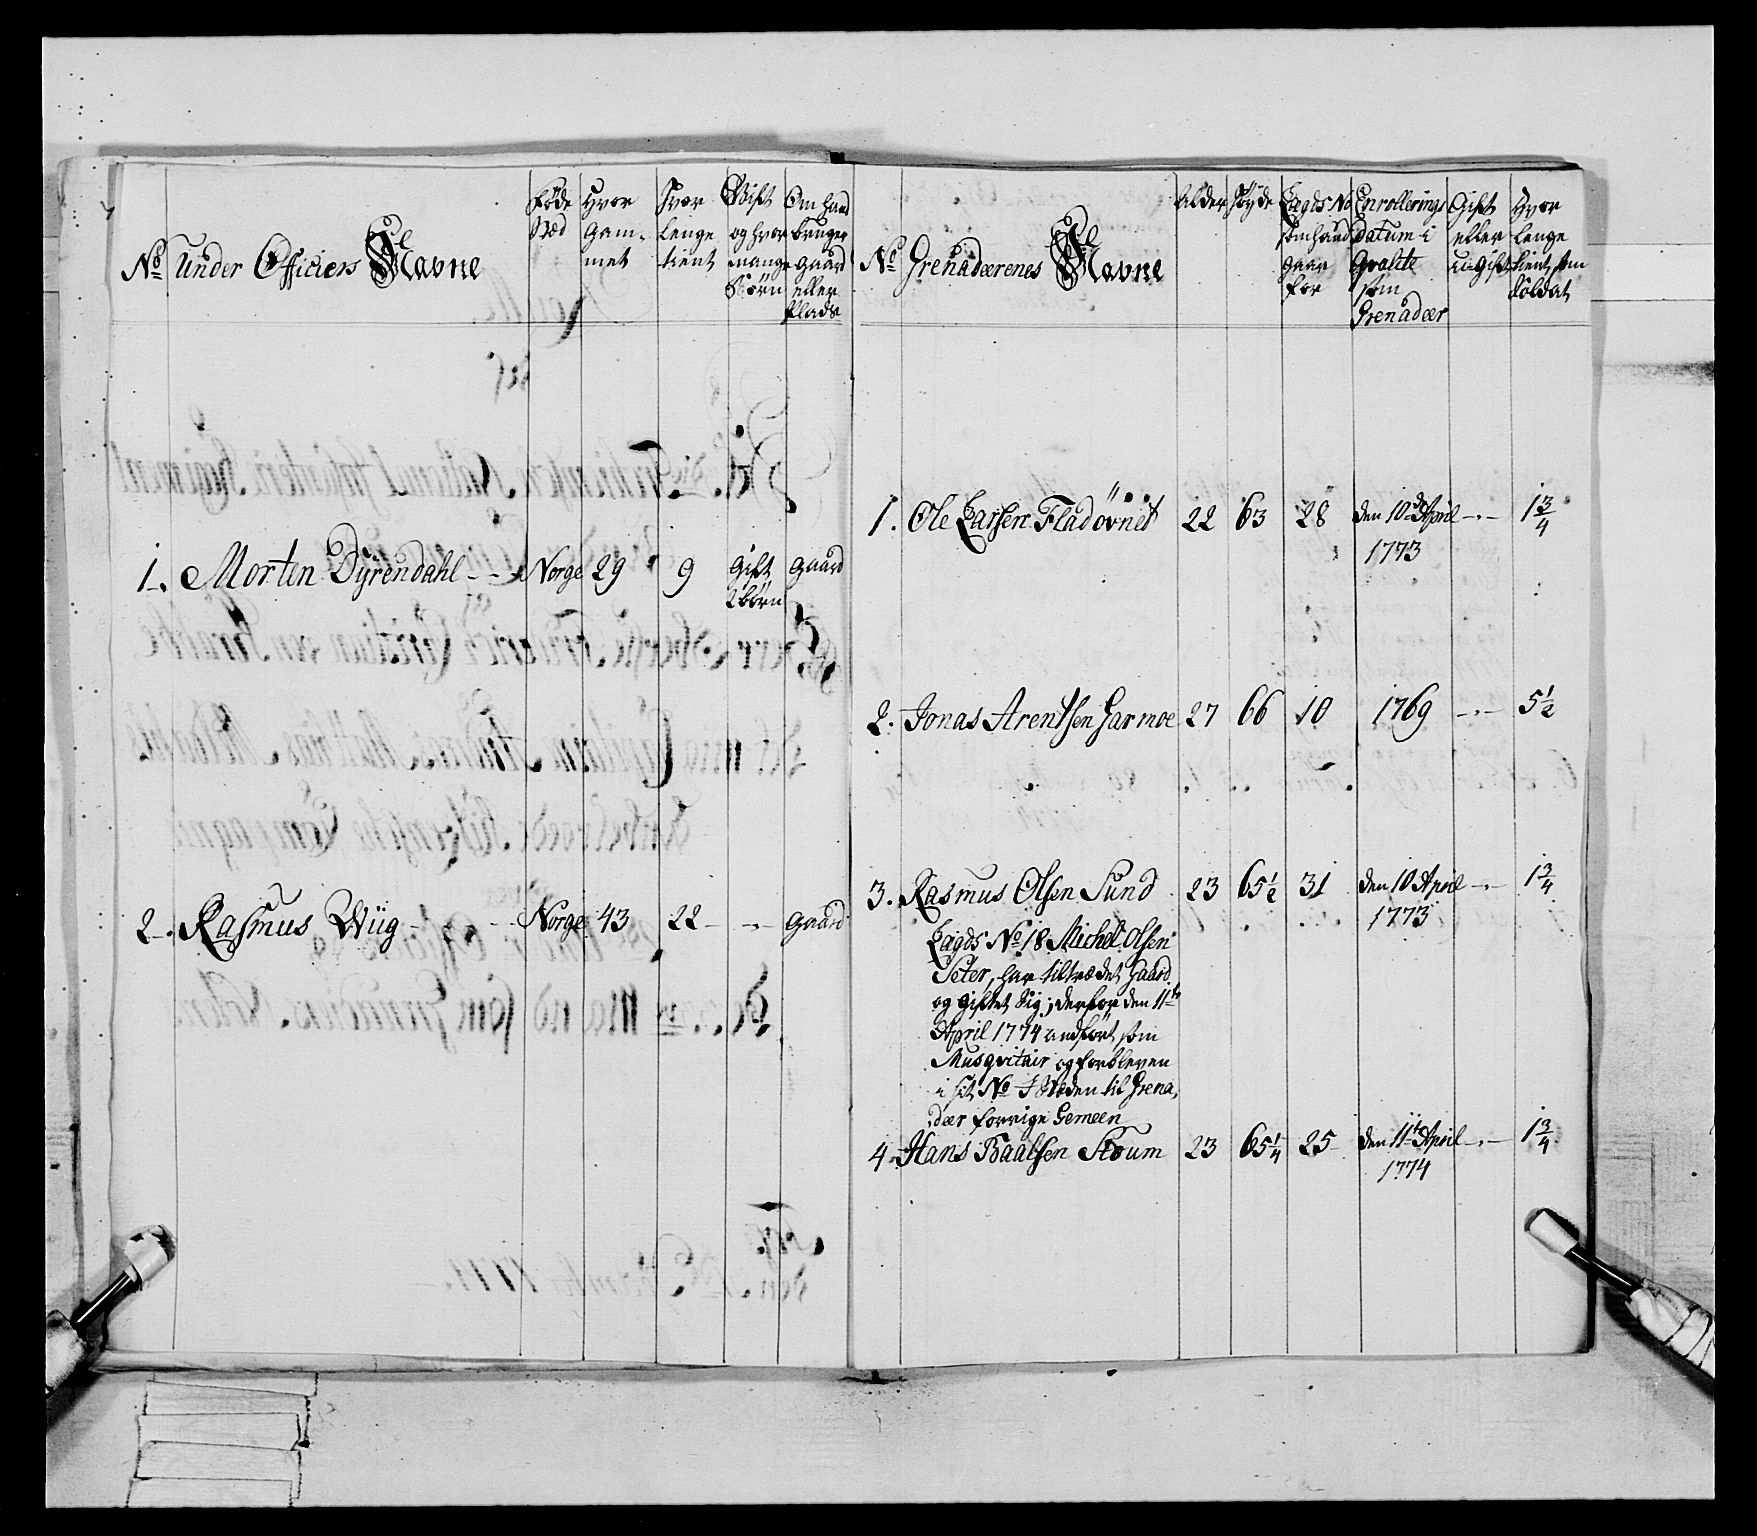 No
Under Officiers Navne
Føde
Stæd
Hvor
Gam-
met
Hvor
lenge
tient
Gift
og hvor
mange
Børn
Om hand
bruger
gaard
eller
Plads
1. Morten Dÿrendahl - - Norge 29 9 Gift gaard
2 børn
2. Rasmus Wiig - - Norge 43 22 - - gaard
No
Grenadeerenes Navne
Alder
Høyde
Lægds No
som hand
gaar
for
Enrollerings
Datum i
Qvalite
som
Grenadeer
Gift
eller
u-Gift
Hvor
lenge
tient som
Soldat
1. Ole Larsen Fladövnet 22 63 28 den 10de April - 1 3/4
1773
2. Jonas Arentsen Garmoe 27 66 10 1769 - 5 1/2
3. Rasmus Olsen Sund 23 65 1/2 31 den 10 April - 1 3/4
1773
Lægds No 18 Michel Olsen
Seter, har tiltrædet Gaard
og giftet sig, derfor den 11te
April 1774 andført som
Musqvitair og forbleven
i sit No I Steden til Grena,
deer forrige Gemeen
4. Hans Paalsen Stoum 23 65 1/4 25 den 11te April - 1 3/4
1774